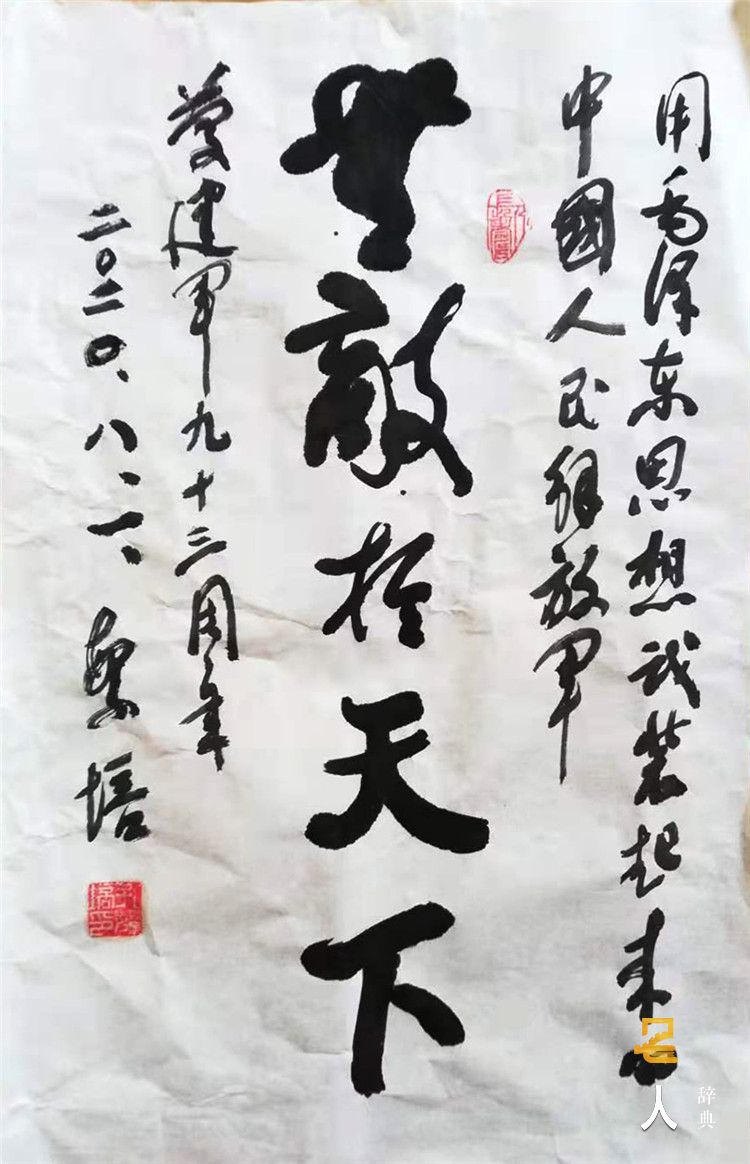 用毛泽东思想武装起来的
中國人民解放军
無敵於天下
慶建军九十三周年
二〇二〇、八、一、
培
名人
辞典